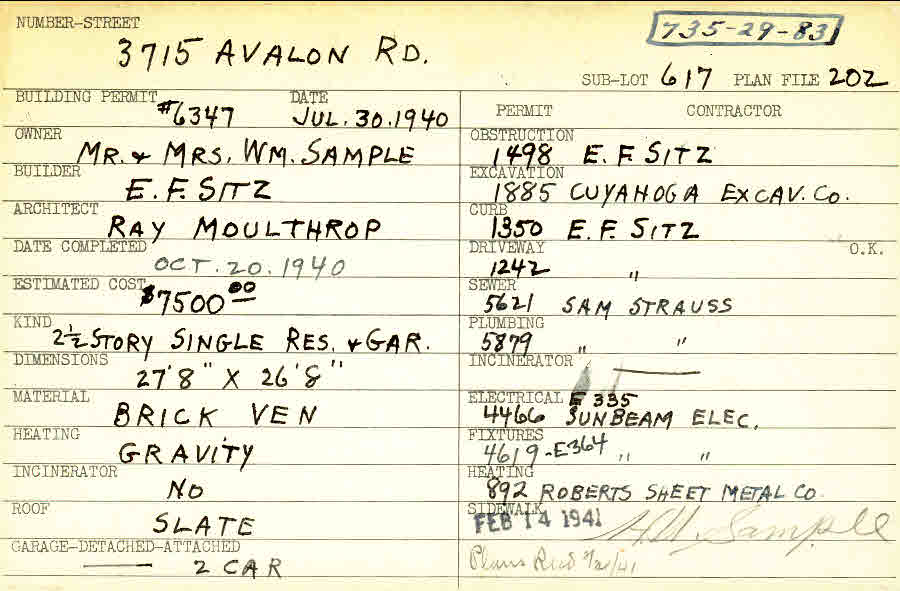 NUMBER-STREET
735-29-83
3715 AVALON RD.
SUB-LOT 617 PLAN FILE 202
BUILDING PERMIT #6347 DATE JUL. 30. 1940
OWNER MR. & MRS. WM. SAMPLE
BUILDER E. F. SITZ
ARCHITECT RAY MOULTHROP
DATE COMPLETED OCT. 20. 1940
ESTIMATED COST $7500 00
KIND 2½ STORY SINGLE RES. & GAR.
DIMENSIONS 27'8" X 26'8"
MATERIAL BRICK VEN
HEATING GRAVITY
INCINERATOR NO
ROOF SLATE
GARAGE-DETACHED-ATTACHED —— 2 CAR
PERMIT CONTRACTOR
OBSTRUCTION 1498 E. F. SITZ
EXCAVATION 1885 CUYAHOGA EXCAV. CO.
CURB 1350 E. F. SITZ
DRIVEWAY O.K.
1242 "
SEWER 5621 SAM STRAUSS
PLUMBING 5879 " "
INCINERATOR ——
ELECTRICAL E 335
4466 SUNBEAM ELEC.
FIXTURES 4619-E364 " "
HEATING 892 ROBERTS SHEET METAL CO.
SIDEWALK FEB 14 1941 Sample
Plans Recd